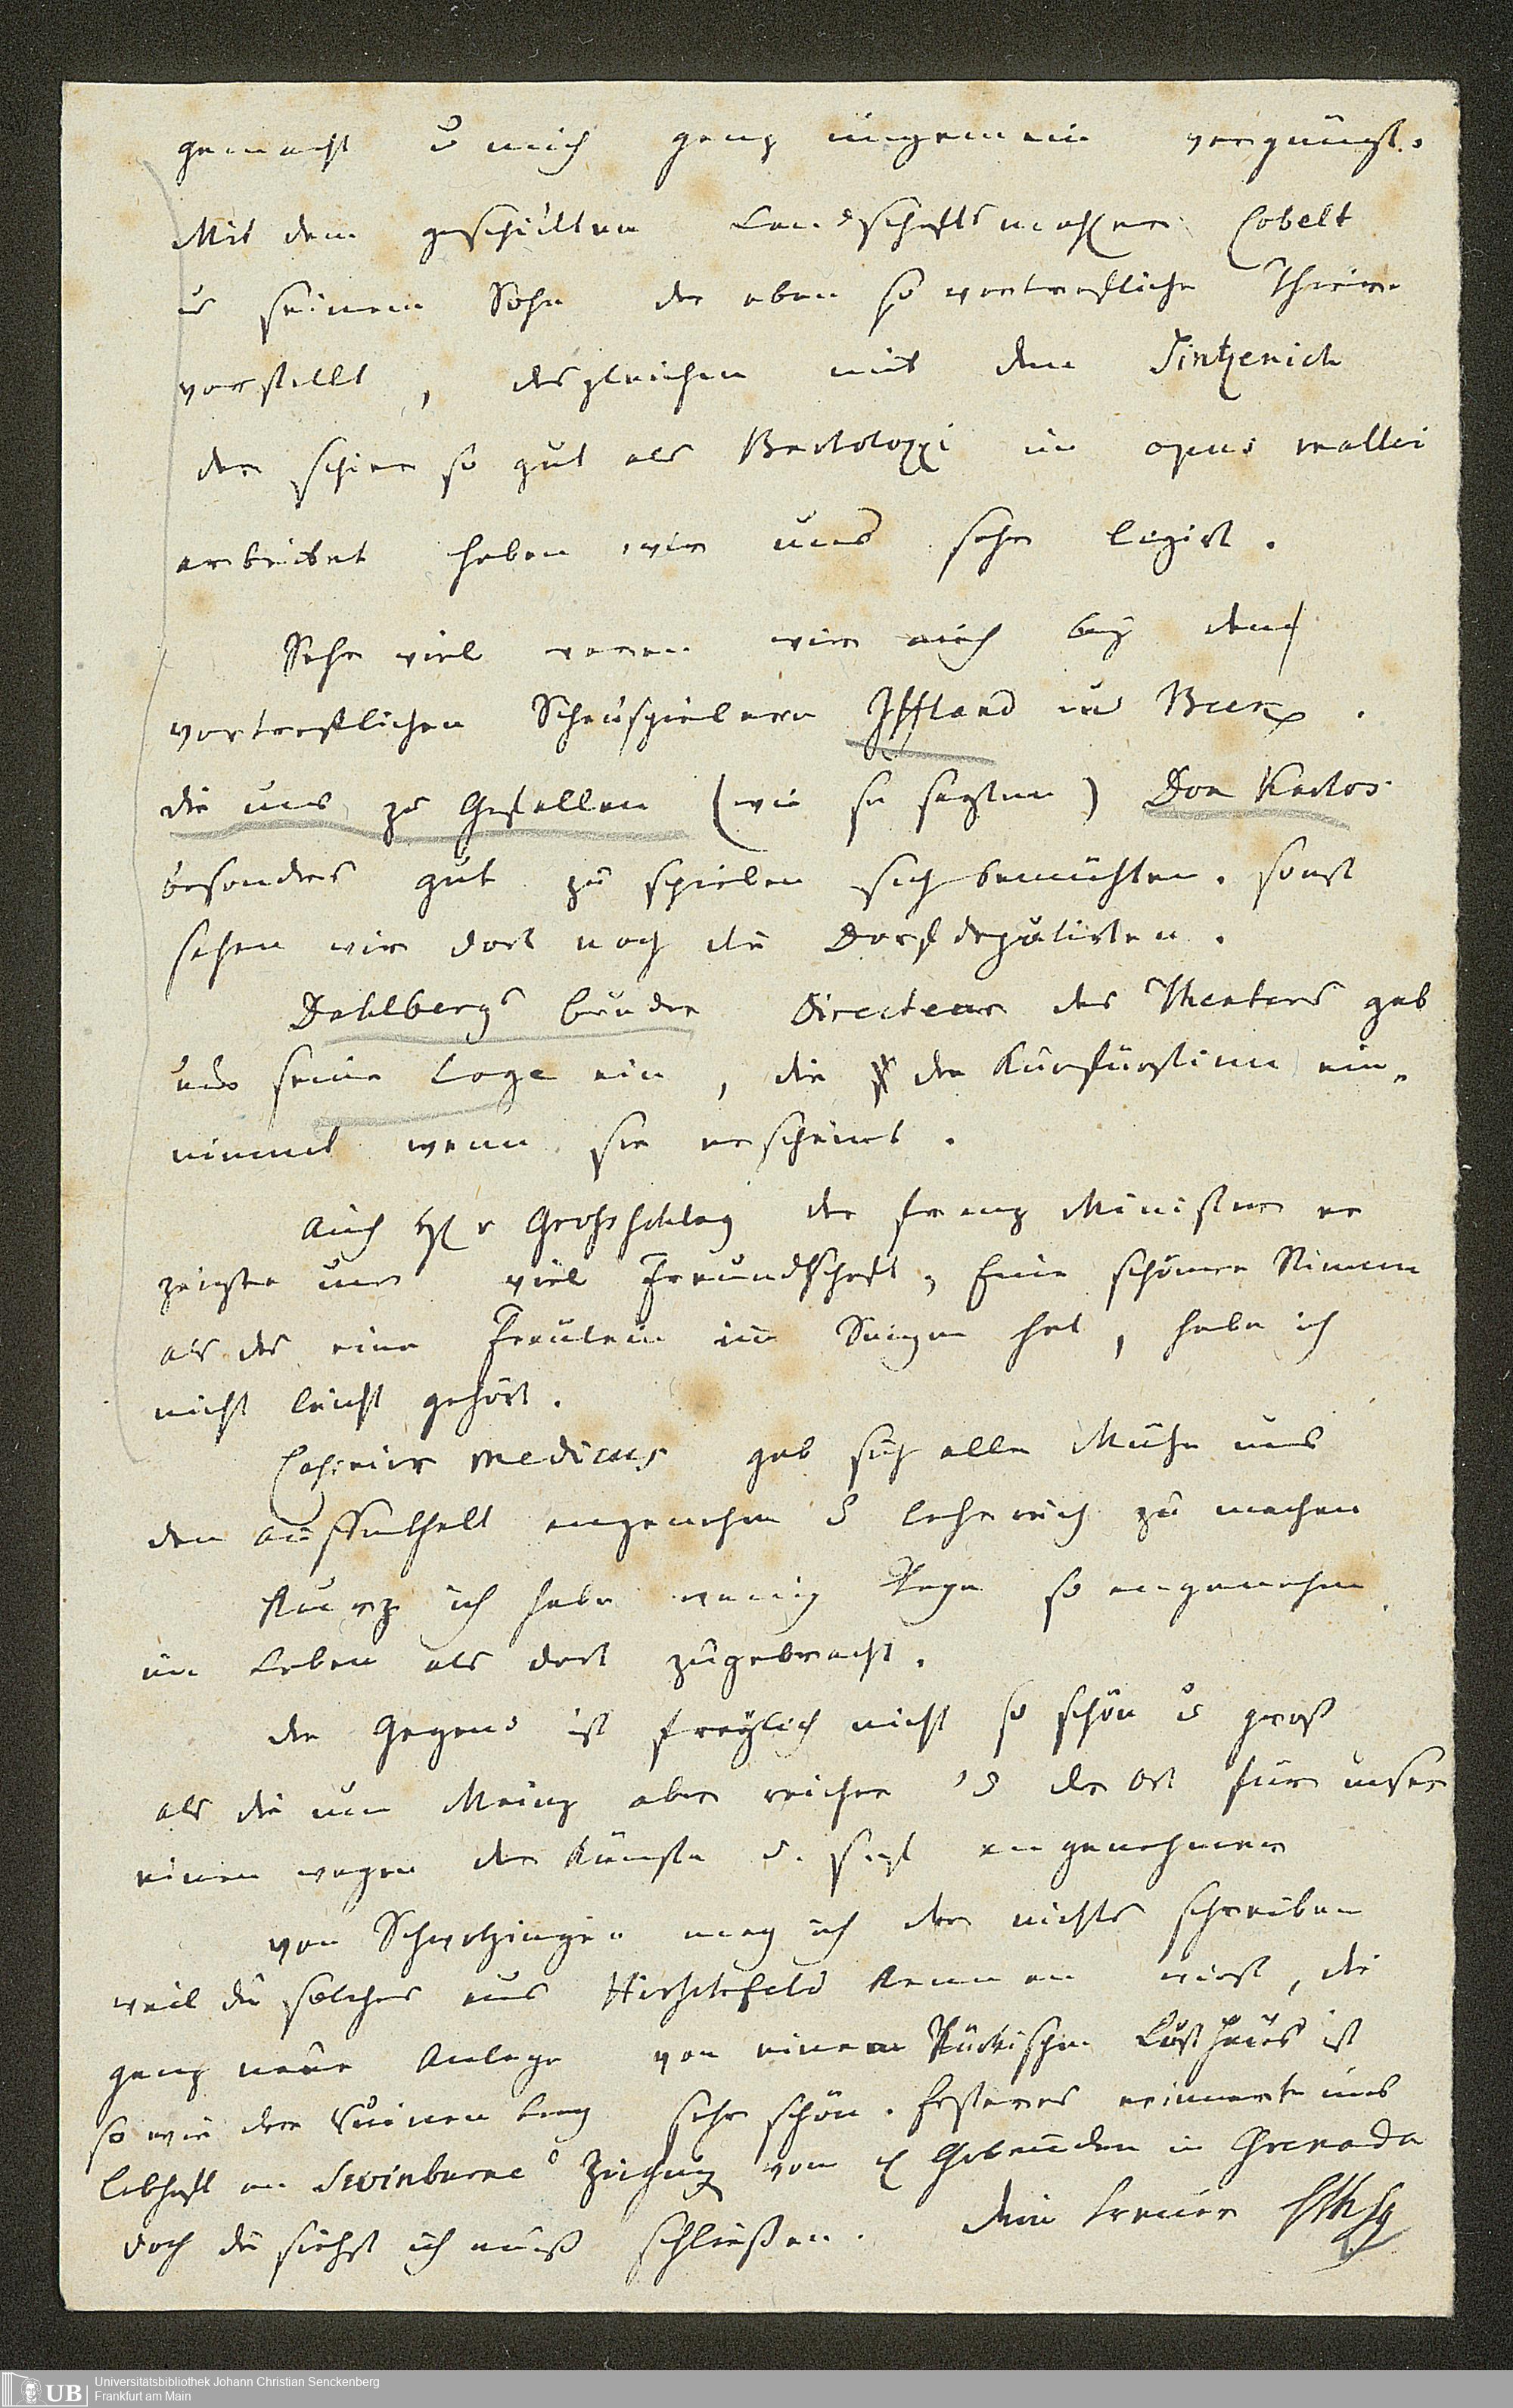 gemacht u mich ganz ungemein vergnügt.
Mit dem geschickten Landschaftsmahler Cobelt
u seinem Sohn der eben so vortrefliche Thiere
vorstellt, desgleichen mit dem Sintzenich
der schier so gut als Bartolozzi in opus mallei
arbeitet haben wir uns sehr liegirt.
Sehr viel waren wir auch bey den
vortreflichen Schauspielern Iffland und Beck.
die uns zu Gefallen (wie sie sagten) Don Karlos
besonders gut zu spielen sich bemühten. sonst
sahen wir dort noch die Dorfdeputirten.
Dahlbergs bruder Directeur des Theaters gab
uns seine Loge ein, die der Kurfürstinn ein-
nimmt wenn sie erscheint.
Auch H v Grosschlag der franz Minister er
zeigte uns viel Freundschaft, Eine schönere Stimme
als das eine Fräulein im Singen hat, habe ich
nicht leicht gehört.
Casimir Medicus gab sich alle Mühe uns
den Auffenthalt angenehm u lehrreich zu machen
Kurz ich habe wenig Tage so angenehm
im Leben als dort zugebracht.
die Gegend ist freylich nicht so schön u groß
als die um Mainz aber reicher u der Ort für unser
einen wegen der Künste u. fast angenehmer
von Schwetzingen mag ich dir nichts schreiben
weil du solches aus Hirschfeld kennen wirst, die
ganz neue Anlage von einem Türkischen Lusthaus ist
so wie der Ruinen berg sehr schön. Ersteres erinnerte uns
lebhaft an Swinburne's Zeichnung vom Gebäuden in Grenada
doch du siehst ich muß schließen. Dein treuer
Universitätsbibliothek Johann Christian Senckenberg
UB Frankfurt am Main